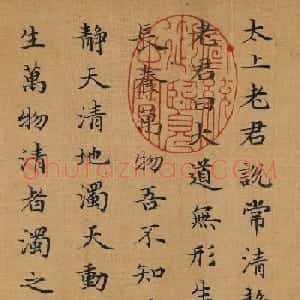 太上老君說常清
老君曰大道無形生
長養萬物吾不知
靜天清地濁天動
生萬物清者濁之